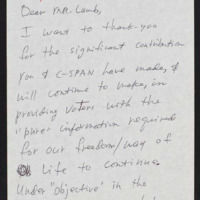 Dear Mr. Lamb,
I want to thank-you
for the significant contribution
you & C-SPAN have made, &
will continue to make, in
providing voters with the
"pure" information required
for our freedom/way of
life to continue.
Under "objective" in the